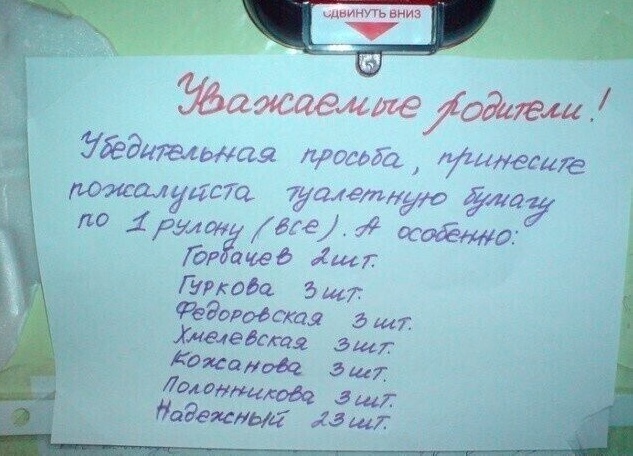 СДВИНУТЬ ВНИЗ
Уважаемые родители!
Убедительная просьба, принесите
пожалуйста туалетную бумагу
по 1 рулону (все). А особенно:
Горбачев 2 шт.
Гуркова 3 шт.
Федоровская 3 шт.
Хмелевская 3 шт.
Кожанова 3 шт.
Полонникова 3 шт.
Надежный 23 шт.